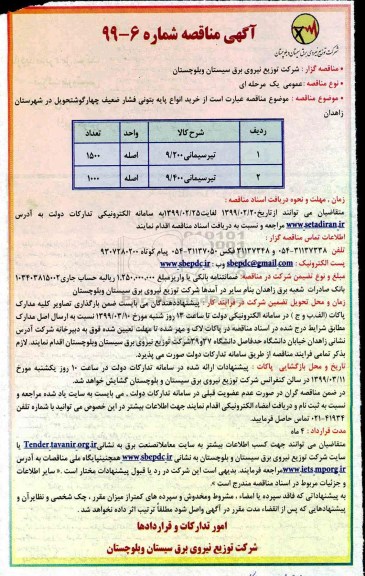 آگهی مناقصه شماره ۶-۹۹
شرکت توزیع نیروی برق سیستان وبلوچستان
• مناقصه گزار : شرکت توزیع نیروی برق سیستان وبلوچستان
• نوع مناقصه :عمومی یک مرحله ای
• موضوع مناقصه : موضوع مناقصه عبارت است از خرید انواع پایه بتونی فشار ضعیف چهارگوشتحویل در شهرستان
زاهدان
ردیف شرح کالا واحد تعداد
۱ تیرسیمانی ۹/۲۰۰ اصله ۱۵۰۰
۲ تیرسیمانی ۹/۴۰۰ اصله ۱۰۰۰
زمان ، مهلت و نحوه دریافت اسناد مناقصه :
متقاضیان می توانند ازتاریخ ۱۳۹۹/۰۲/۲۰ لغایت ۱۳۹۹/۰۲/۲۵به سامانه الکترونیکی تدارکات دولت به آدرس
www.setadiran.ir مراجعه و نسبت به دریافت اسناد مناقصه اقدام نمایند
اطلاعات تماس مناقصه گزار :
تلفن ۳۱۱۳۷۳۳۸-۰۵۴ و ۳۱۱۳۷۳۴۸ فکس ۳۱۱۳۷۰۵۰-۰۵۴ پیام کوتاه ۹۳۰۷۲۸۰۲۰۰
پست الکترونیک : sbepdc@gmail.com وب : www.sbepdc.ir
مبلغ و نوع تضمین شرکت در مناقصه: ضمانتنامه بانکی یا واریزمبلغ ۱،۲۵۰،۰۰۰،۰۰۰ ریالبه حساب جاری ۰۱۰۳۴۰۳۸۱۵۰۰۲
بانک صادرات شعبه برق زاهدان بنام سایر در آمدها شرکت توزیع نیروی برق سیستان وبلوچستان
زمان و محل تحویل تضمین شرکت در فرایند کار: پیشنهاددهندگان می بایست ضمن بارگذاری تصاویر کلیه مدارک
پاکات (الف،ب و ج ) در سامانه الکترونیکی دولت تا ساعت ۱۴ روز شنبه مورخ ۱۳۹۹/۰۳/۱۰ نسبت به ارسال اصل مدارک
مطابق شرایط درج شده در اسناد مناقصه در پاکات لاک و مهر شده تا مهلت تعیین شده فوق به دبیرخانه شرکت آدرس
نشانی زاهدان خیابان دانشگاه حدفاصل دانشگاه ۳۷و۳۹شرکت توزیع نیروی برق سیستان وبلوچستان اقدام نمایند. لازم
بذکر تمامی فرایند مناقصه از طریق سامانه تدارکات دولت صورت می پذیرد.
تاریخ و محل بازگشایی پاکات : پیشنهادات ارائه شده در سامانه تدارکات دولت در ساعت ۱۰ روز یکشنبه مورخ
۱۳۹۹/۰۳/۱۱ در سالن کنفرانس شرکت توزیع نیروی برق سیستان و بلوچستان گشایش خواهد شد.
در ضمن مناقصه گران در صورت عدم عضویت قبلی در سامانه تدارکات دولت ، می بایست به سایت یاد شده مراجعه و
نسبت به ثبت نام و دریافت امضاء الکترونیکی اقدام نمایند جهت اطلاعات بیشتر در این خصوص می توانید با شماره تلفن
۴۱۹۳۴-۰۲۱ تماس حاصل فرمایید.
مدت قرارداد : ۴ ماه
متقاضیان می توانند جهت کسب اطلاعات بیشتر به سایت معاملاتصنعت برق به نشانی Tender.tavanir.org.ir یا
سایت شرکت توزیع نیروی برق سیستان و بلوچستان به نشانی www.sbepdc.ir همچنینپایگاه ملی مناقصات به آدرس
www.iets.mporg.ir مراجعه فرمایند. بدیهی است این شرکت در رد یا قبول پیشنهادات مختار است .« سایر اطلاعات
و جزئیات مربوط در اسناد مناقصه مندرج است »
به پیشنهاداتی که فاقد سپرده یا امضاء ، مشروط ومخدوش و سپرده های کمتراز میزان مقرر ، چک شخصی و نظایرآن و
پیشنهادهایی که پس از انقضاء مدت مقرر در آگهی واصل شود مطلقاً ترتیب اثر داده نخواهد شد.
امور تدارکات و قراردادها
شرکت توزیع نیروی برق سیستان وبلوچستان